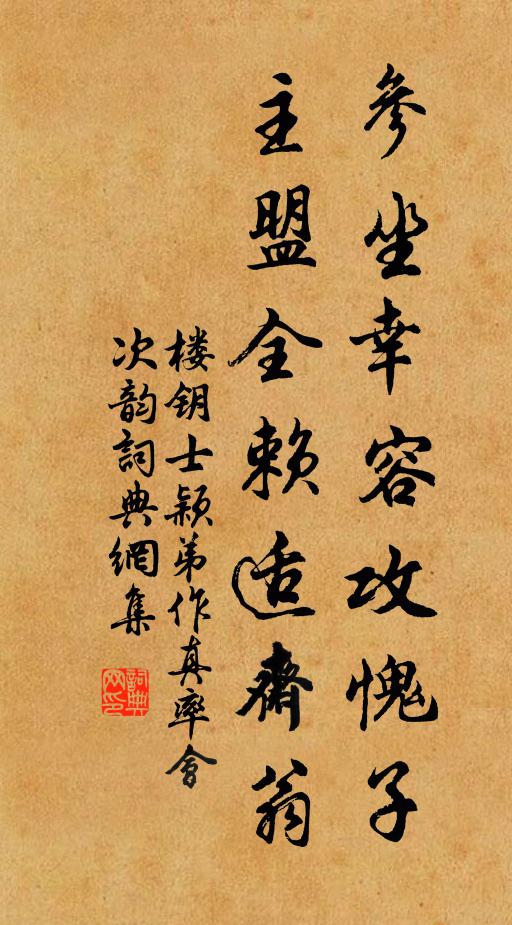 参坐幸容攻愧子
主盟全赖适斋翁
楼钥士颖弟作真率会
次韵词典網集
詞典網印